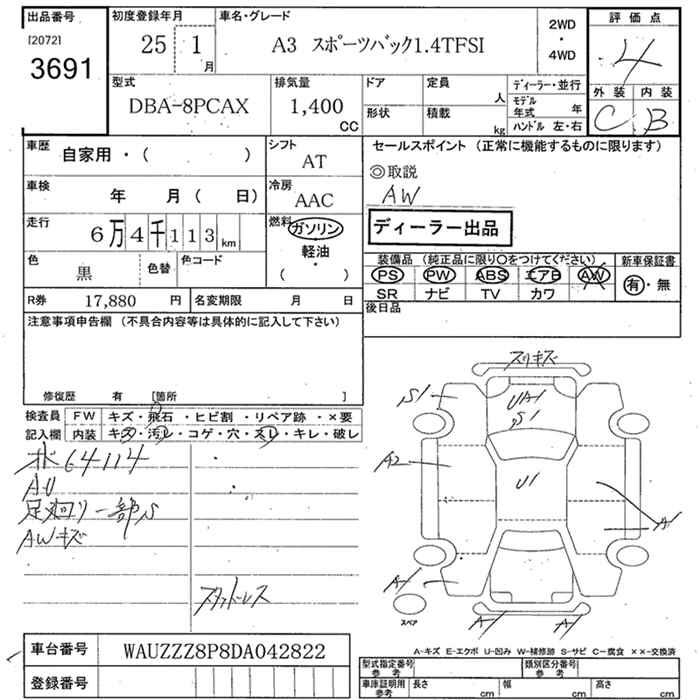 出品番号
[2072]
3691
初度登録年月
25 1
月
車名・グレード
A3 スポーツバック1.4TFSI
2WD
・
4WD
評価点
4
外装 内装
C B
型式
DBA-8PCAX
排気量
1,400
CC
ドア
形状
定員
人
積載
kg
ディーラー・並行
モデル年式 年
ハンドル 左・右
車歴
自家用・( )
シフト
AT
車検
年 月( 日)
冷房
AAC
走行
6万4千113km
燃料
ガソリン
軽油
・
( )
色
黒
色替
色コード
R券 17,880 円
名変期限 月 日
セールスポイント (正常に機能するものに限ります)
◎取説
AW
ディーラー出品
装備品 (純正品に限り○をつけてください)
PS PW ABS エアB AW
SR ナビ TV カワ
新車保証書
有・無
後日品
注意事項申告欄 (不具合内容等は具体的に記入して下さい)
修復歴 有 [箇所 ]
検査員
記入欄
FW キズ・飛石・ヒビ割・リペア跡・×要
内装 キズ・汚レ・コゲ・穴・スレ・キレ・破レ
64114
AU
足廻り一部S
AWキズ
スタットレス
スリキズ
S1
UA1
S1
A2
U1
A1
A1
A1
A1
スペア
A-キズ E-エクボ U-凹み W-補修跡 S-サビ C-腐食 ××-交換済
車台番号 WAUZZZ8P8DA042822
登録番号
型式指定番号
参考
類別区分番号
参考
車庫証明用
参考
長さ cm
幅 cm
高さ cm